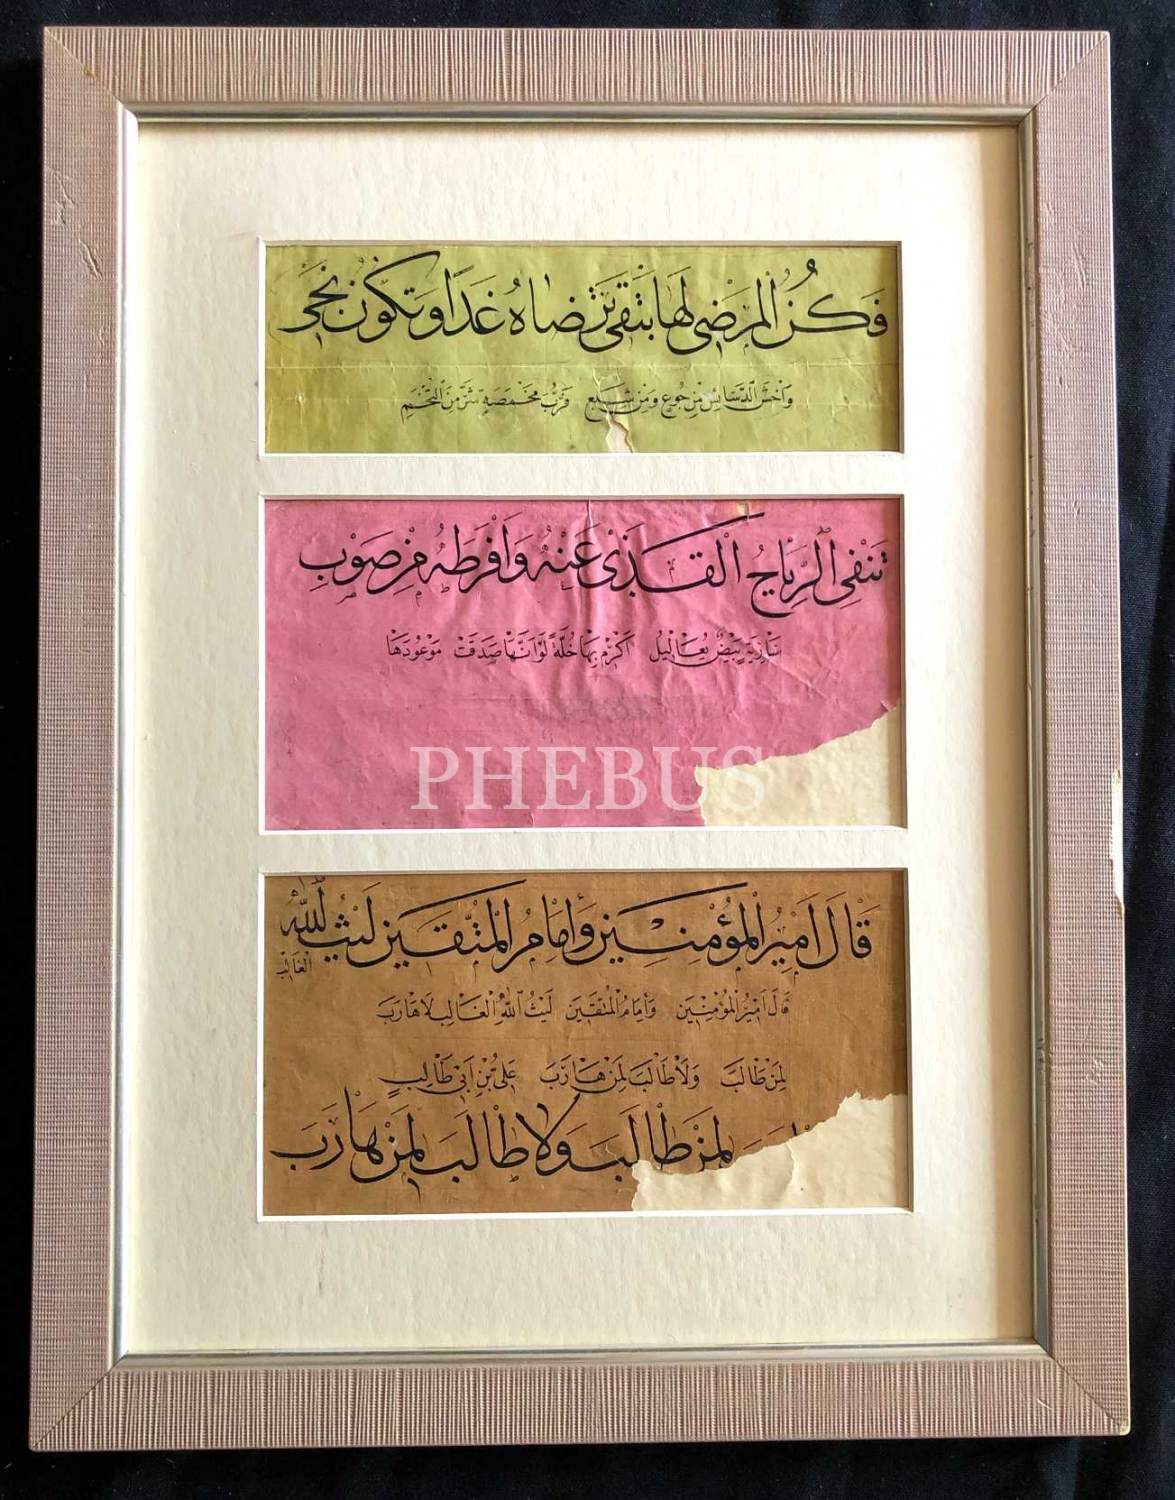 فَكُنِ الْمَرْضِي لَهَا بِتُقًى تَرْضَاهُ غَدًا وَتَكُونُ نَجِي
وَاخْشَ الدَّسَايِسَ مِنْ جُوعٍ وَمِنْ شِبَعٍ فَرُبَّ مَخْمَصَةٍ شَرٌّ مِنَ التُّخَمِ
تَنْفِي الرِّيَاحُ الْقَذَى عَنْهُ وَأَفْرَطَهُ مِنْ صَوْبِ
سَارِيَةٍ بِيضٌ يَعَالِيلُ أَكْرِمْ بِهَا خُلَّةً لَوْ أَنَّهَا صَدَقَتْ مَوْعُودَهَا
PHEBUS
قَالَ أَمِيرُ الْمُؤْمِنِينَ وَإِمَامُ الْمُتَّقِينَ لَيْثُ اللَّهِ الْغَالِبِ
قَالَ أَمِيرُ الْمُؤْمِنِينَ وَإِمَامُ الْمُتَّقِينَ لَيْثُ اللَّهِ الْغَالِبِ لَا هَارَبَ
لِمَنْ طَالَبَ وَلَا طَالَبَ لِمَنْ هَارَبَ عَلِيُّ بْنُ أَبِي طَالِبٍ
لِمَنْ طَالَبَ وَلَا طَالَبَ لِمَنْ هَارَبَ